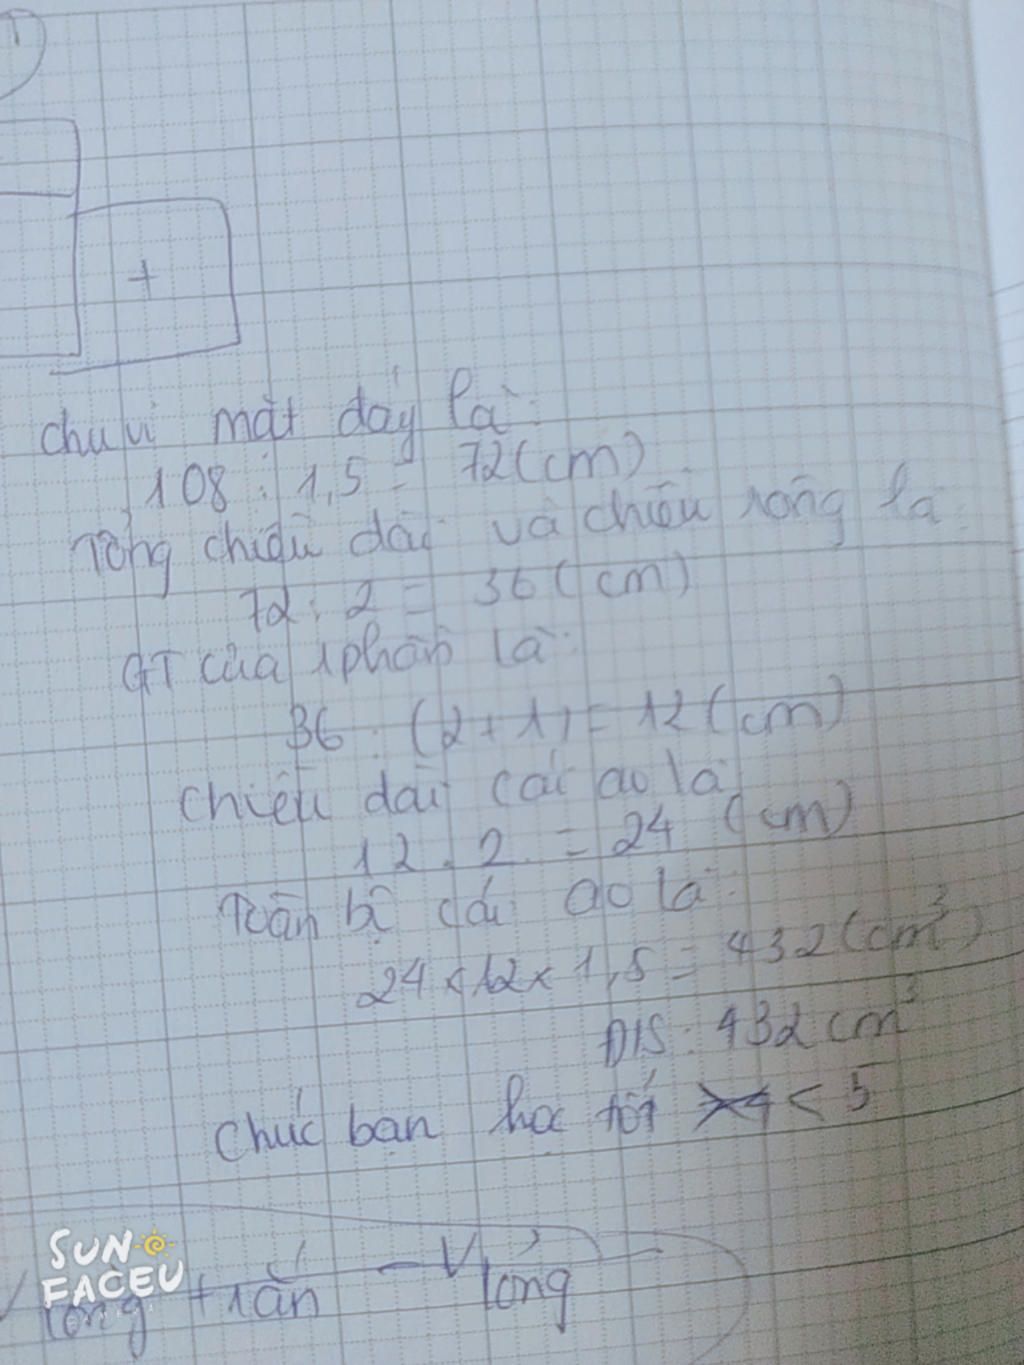 +
chu vi mặt đáy là:
108 : 1,5 = 72 (cm)
Tổng chiều dài và chiều rộng là:
72 : 2 = 36 (cm)
GT của 1 phần là:
36 : (2 + 1) = 12 (cm)
chiều dài cái ao là
12 . 2 = 24 (cm)
Toàn bộ cái ao là:
24 x 12 x 1,5 = 432 (cm³)
Đ/S : 432 cm³
chúc bạn học tốt < 5
SUN
FACEU
lỏng + rắn - V lỏng